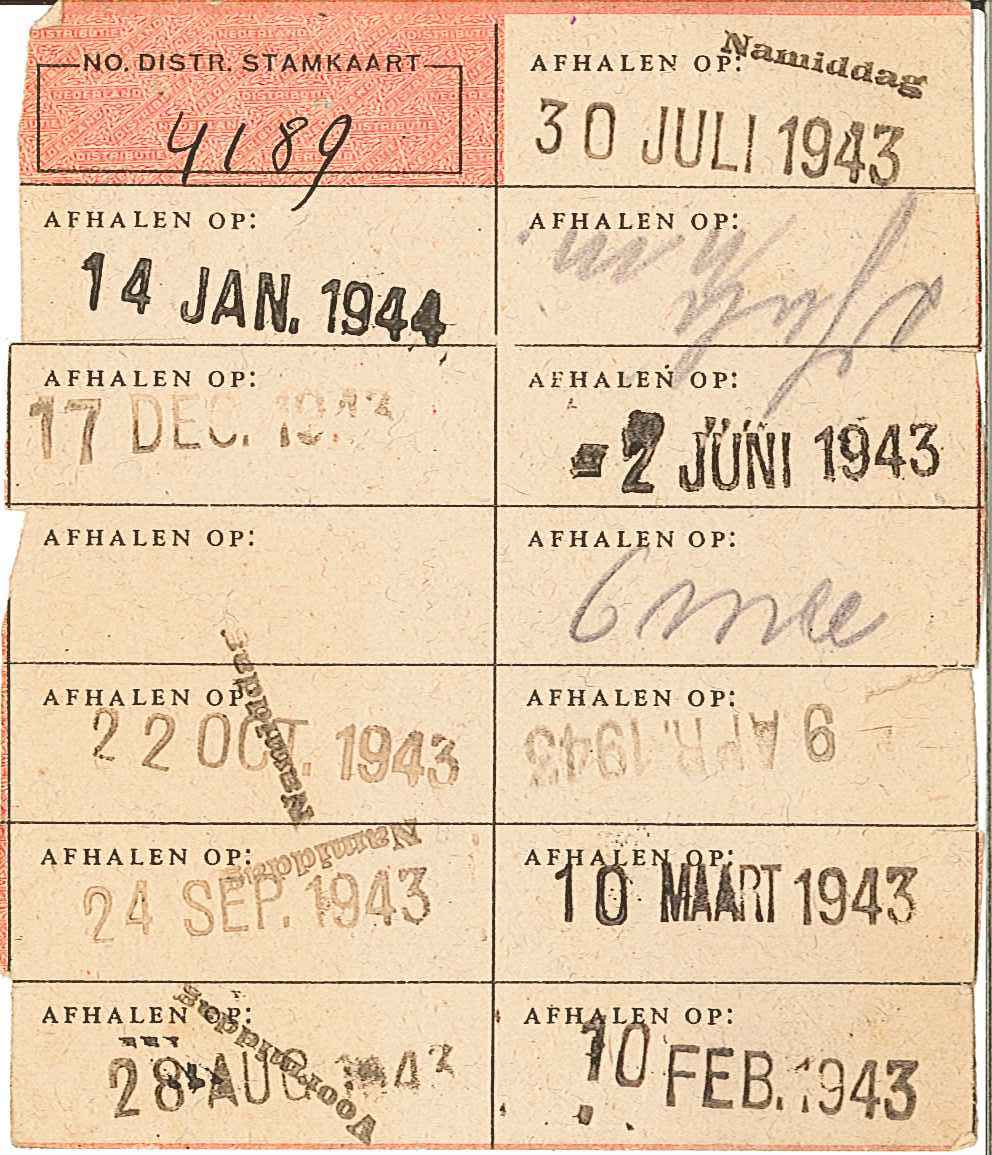 NO. DISTR. STAMKAART
4189
AFHALEN OP:
14 JAN. 1944
AFHALEN OP:
17 DEC. 1943
AFHALEN OP:
AFHALEN OP:
Namiddag
22 OCT. 1943
AFHALEN OP:
Namiddag
24 SEP. 1943
AFHALEN OP:
Voormiddag
28 AUG 1943
AFHALEN OP:
Namiddag
30 JULI 1943
AFHALEN OP:
AFHALEN OP:
-2 JUNI 1943
AFHALEN OP:
6 mei
AFHALEN OP:
9 APR. 1943
AFHALEN OP:
10 MAART 1943
AFHALEN OP:
10 FEB. 1943